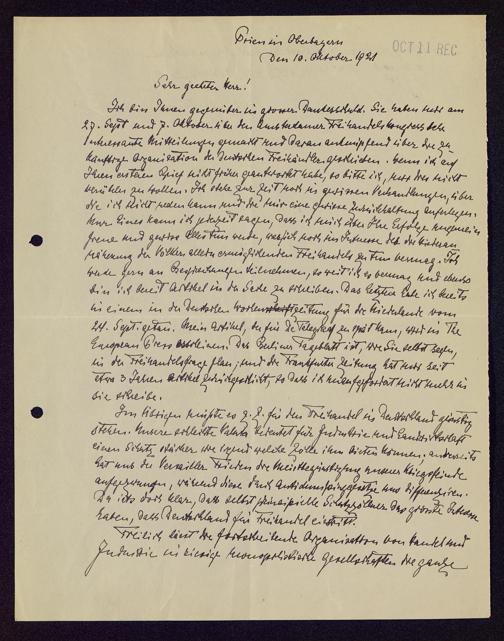 Prien in Oberbayern
OCT 11 REC
Den 10. Oktober 1921
Sehr geehrter Herr!
Ich bin Ihnen gegenüber in grosser Dankesschuld. Sie haben mir am
27. Sept und 7. Oktober über den Amsterdamer Freihandelskongress sehr
interessante Mitteilungen gemacht und daran anknüpfend über die zu-
künftige Organisation der Deutschen Freihändler geschrieben. Wenn ich auf
Ihren ersten Brief nicht früher geantwortet habe, so bitte ich, mir dies nicht
verübeln zu wollen. Ich stehe zur Zeit noch in gewissen Verhandlungen, über
die ich nicht reden kann und die mir eine gewisse Zurückhaltung auferlegen.
Nur Eines kann ich jederzeit sagen, dass ich mich über Ihre Erfolge ungemein
freue und gerne alles tun werde, was ich noch im Interesse des die
näherung der Völker allein ermöglichenden Freihandels zu tun vermag. Ich
werde gern an Besprechungen teilnehmen, soweit ich es vermag und ebenso
bin ich bereit Artikel in der Sache zu schreiben. Das letztere habe ich bereits
in einem in der Deutschen Wochenzeitung für die Niederlande vom
24. Sept. getan. Mein Artikel, der für de Telegraaf zu spät kam, wird in The
European Press erscheinen. Das Berliner Tageblatt ist, wie Sie selbst sagen,
in der Freihandelsfrage flau; und die Frankfurter Zeitung hat mir seit
etwa 3 Jahren Artikel zurückgeschickt, so dass ich unaufgefordert nicht mehr in
sie schreibe.
Im übrigen müsste es z. Z. für den Freihandel in Deutschland günstig
stehen. Unsere schlechte Valuta bedeutet für Industrie und Landwirtschaft
einen Schutz, stärker wie irgend welche Zölle ihn bieten können, anderseits
hat uns der Versailler Frieden die Meistbegünstigung unserer Kriegsfeinde
aufgezwungen, während diese durch Antidumpinggesetze uns differenzieren.
Da ist doch klar, dass selbst prinzipielle Schutzzöllner das grösste Interesse
haben, dass Deutschland für Freihandel eintritt.
Freilich lässt die fortschreitende Organisation von Handel und
Industrie in riesige monopolistische Gesellschaften die ganze